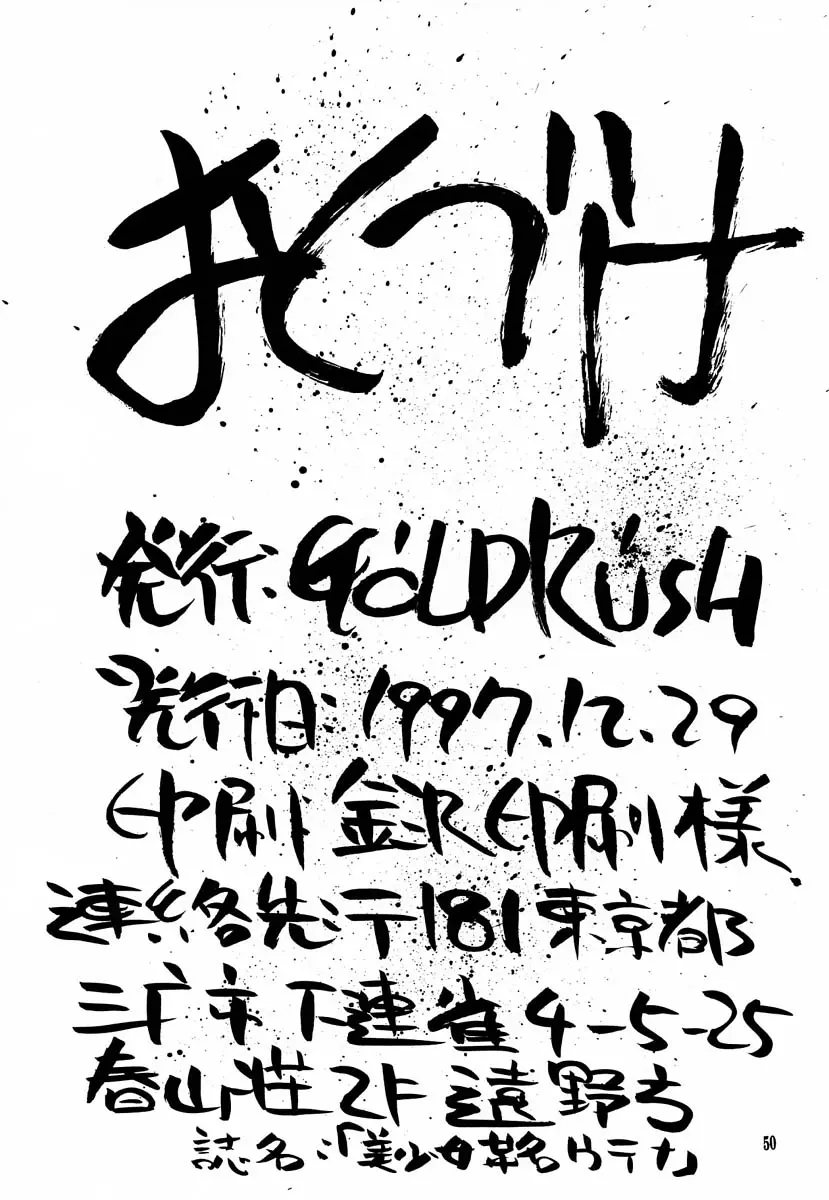 おくづけ
発行:GOLDRUSH
発行日:1997.12.29
印刷 金沢印刷様
連絡先:〒181東京都
三广市下連雀4-5-25
春山荘2F 遠野方
誌名:「美少女革名ウテナ」
50